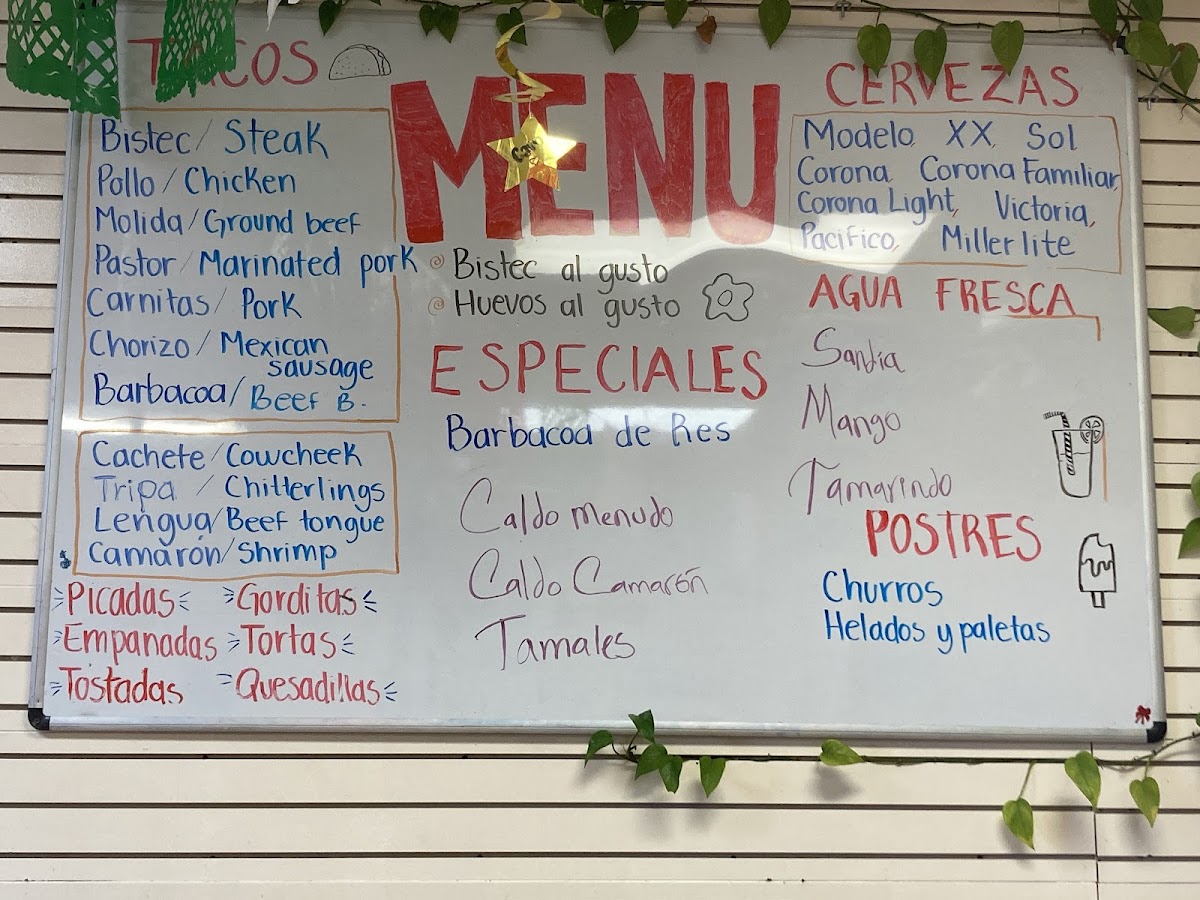 TACOS
Bistec / Steak
Pollo / Chicken
Molida / Ground beef
Pastor / Marinated pork
Carnitas / Pork
Chorizo / Mexican
sausage
Barbacoa / Beef B.
Cachete / Cowcheek
Tripa / Chitterlings
Lengua / Beef tongue
Camarón / Shrimp
Picadas Gorditas
Empanadas Tortas
Tostadas Quesadillas
MENU
Bistec al gusto
Huevos al gusto
ESPECIALES
Barbacoa de Res
Caldo menudo
Caldo Camarón
Tamales
CERVEZAS
Modelo, XX, Sol
Corona Corona Familiar,
Corona Light, Victoria,
Pacifico, Miller lite
AGUA FRESCA
Sandia
Mango
Tamarindo
POSTRES
Churros
Helados y paletas